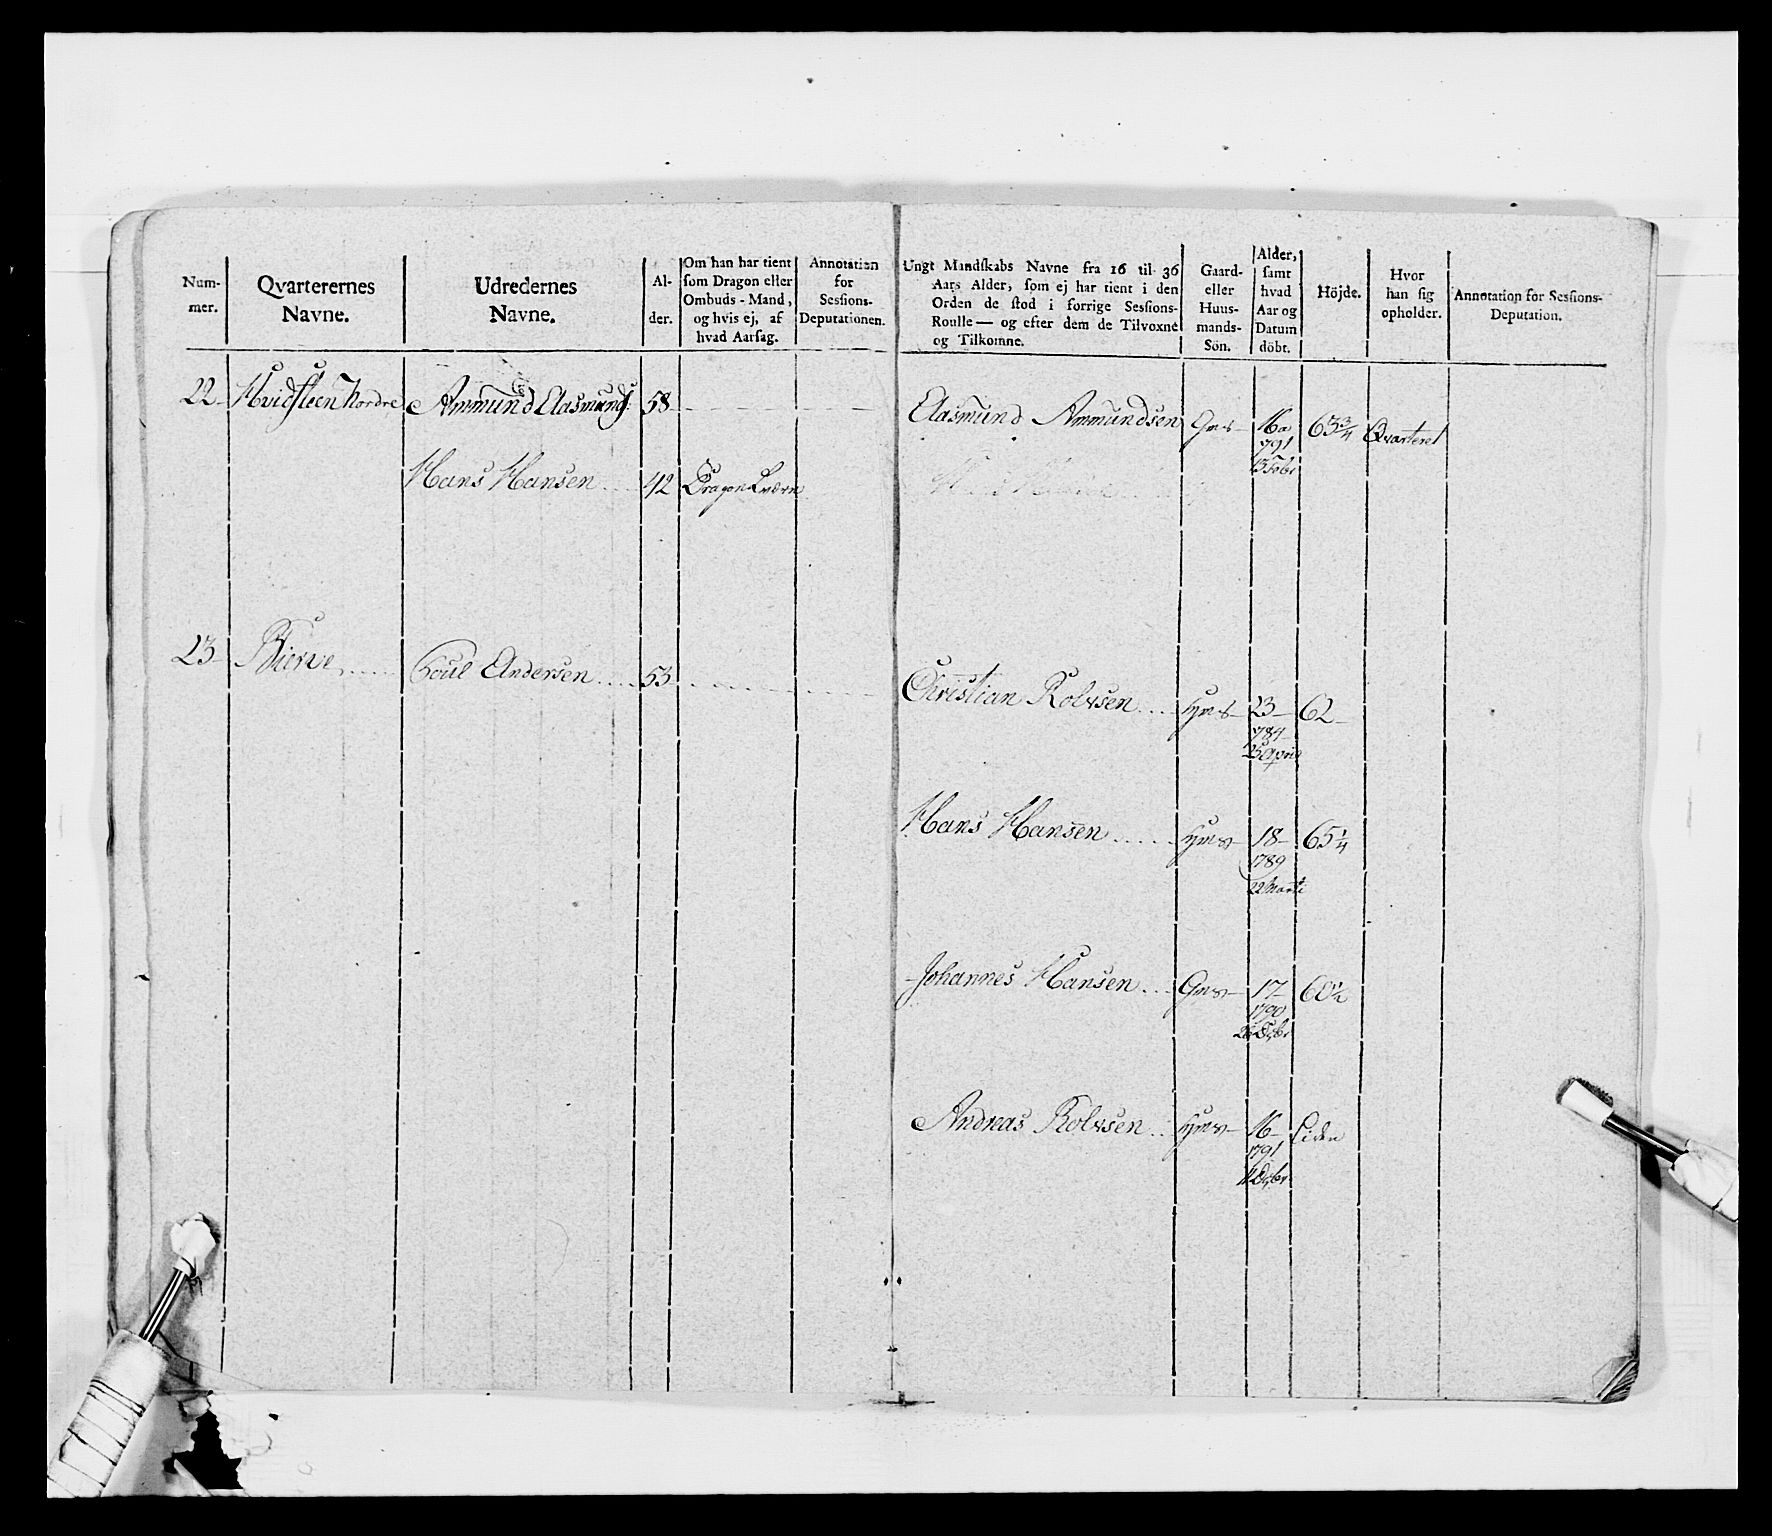 Num-
mer.
Qvarterernes
Navne.
Udredernes
Navne.
Al-
der.
Om han har tient
som Dragon eller
Ombuds-Mand,
og hvis ej, af
hvad Aarsag.
Annotation
for
Sessions-
Deputationen.
Ungt Mandskabs Navne fra 16 til 36
Aars Alder, som ej har tient i den
Orden de stod i forrige Sessions-
Roulle — og efter dem de Tilvoxne
og Tilkomne.
Gaard-
eller
Huus-
mands-
Sön.
Alder,
samt
hvad
Aar og
Datum
döbt.
Höjde.
Hvor
han sig
opholder.
Annotation for Sessions-
Deputation.
22 Hvidsteen Nordre Ammund Aasmunds: 58
Aasmund Ammundsen Gms 16 63 3/4 Qvarteret
791
13 Febr
Hans Hansen 42 Dragon
23 Bierve Poul Andersen 53
Christian Rolvsen Hms 23 62
784
25 April
Hans Hansen Hms 18 65 1/4
1789
22 Marti
Johannes Hansen Gms 17 60 1/2
1790
Andreas Rolvsen Hms 16 Liden
1791